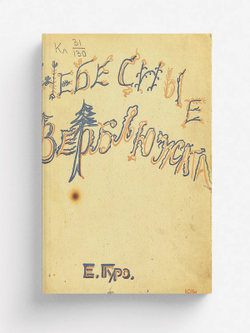 Кл 31/130
НЕБЕСНЫЕ
ВЕРБЛЮЖАТА
Е. ГУРО.